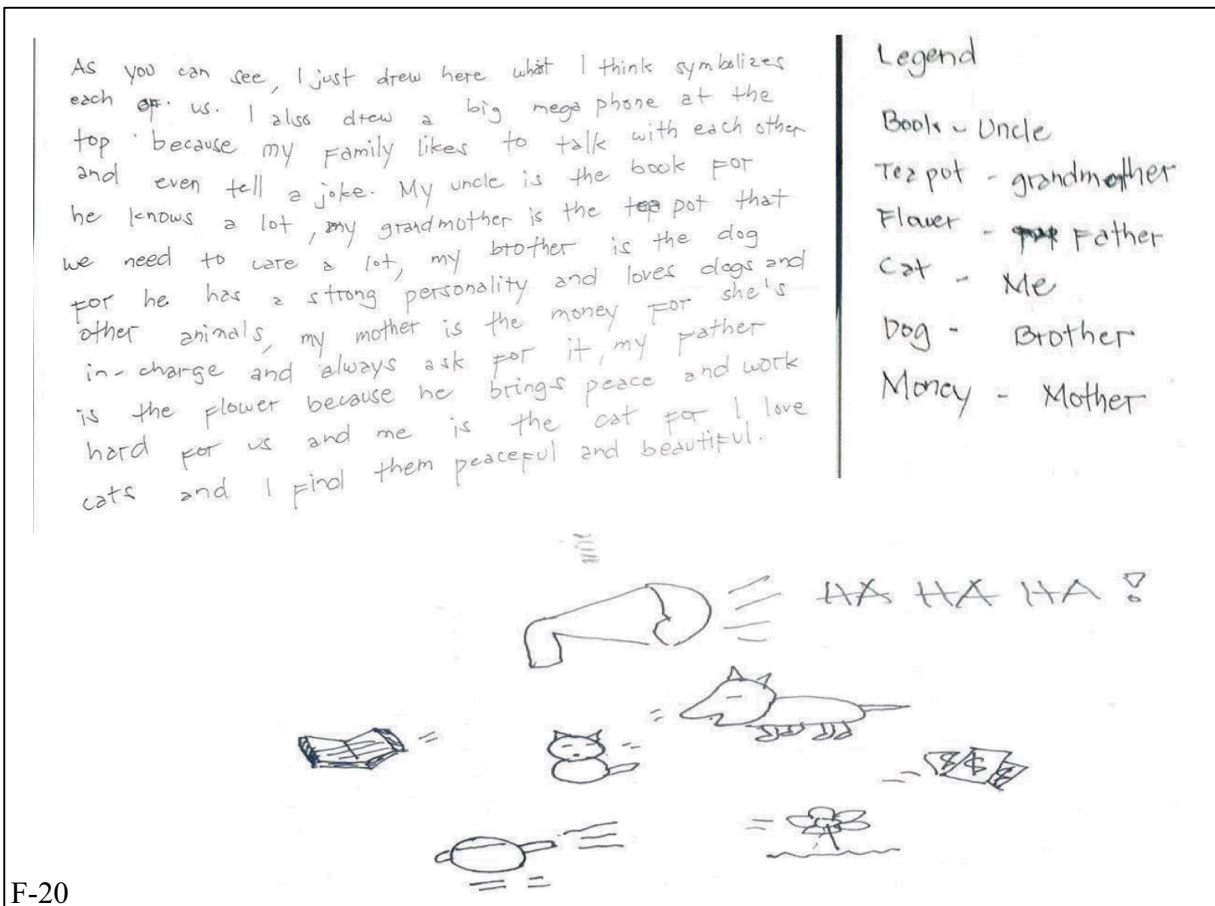 As you can see, I just drew here what I think symbolizes
each of us. I also drew a big mega phone at the
top because my Family likes to talk with each other
and even tell a joke. My uncle is the book For
he knows a lot, my grandmother is the tea pot that
we need to care a lot, my brother is the dog
For he has a strong personality and loves dogs and
other animals, my mother is the money For she's
in-charge and always ask For it, my Father
is the Flower because he brings peace and work
hard For us and me is the cat For I love
cats and I Find them peaceful and beautiful.
Legend
Book - Uncle
Tea pot - grandmother
Flower - Father
Cat - Me
Dog - Brother
Money - Mother
HA HA HA !
$ $ $
F-20